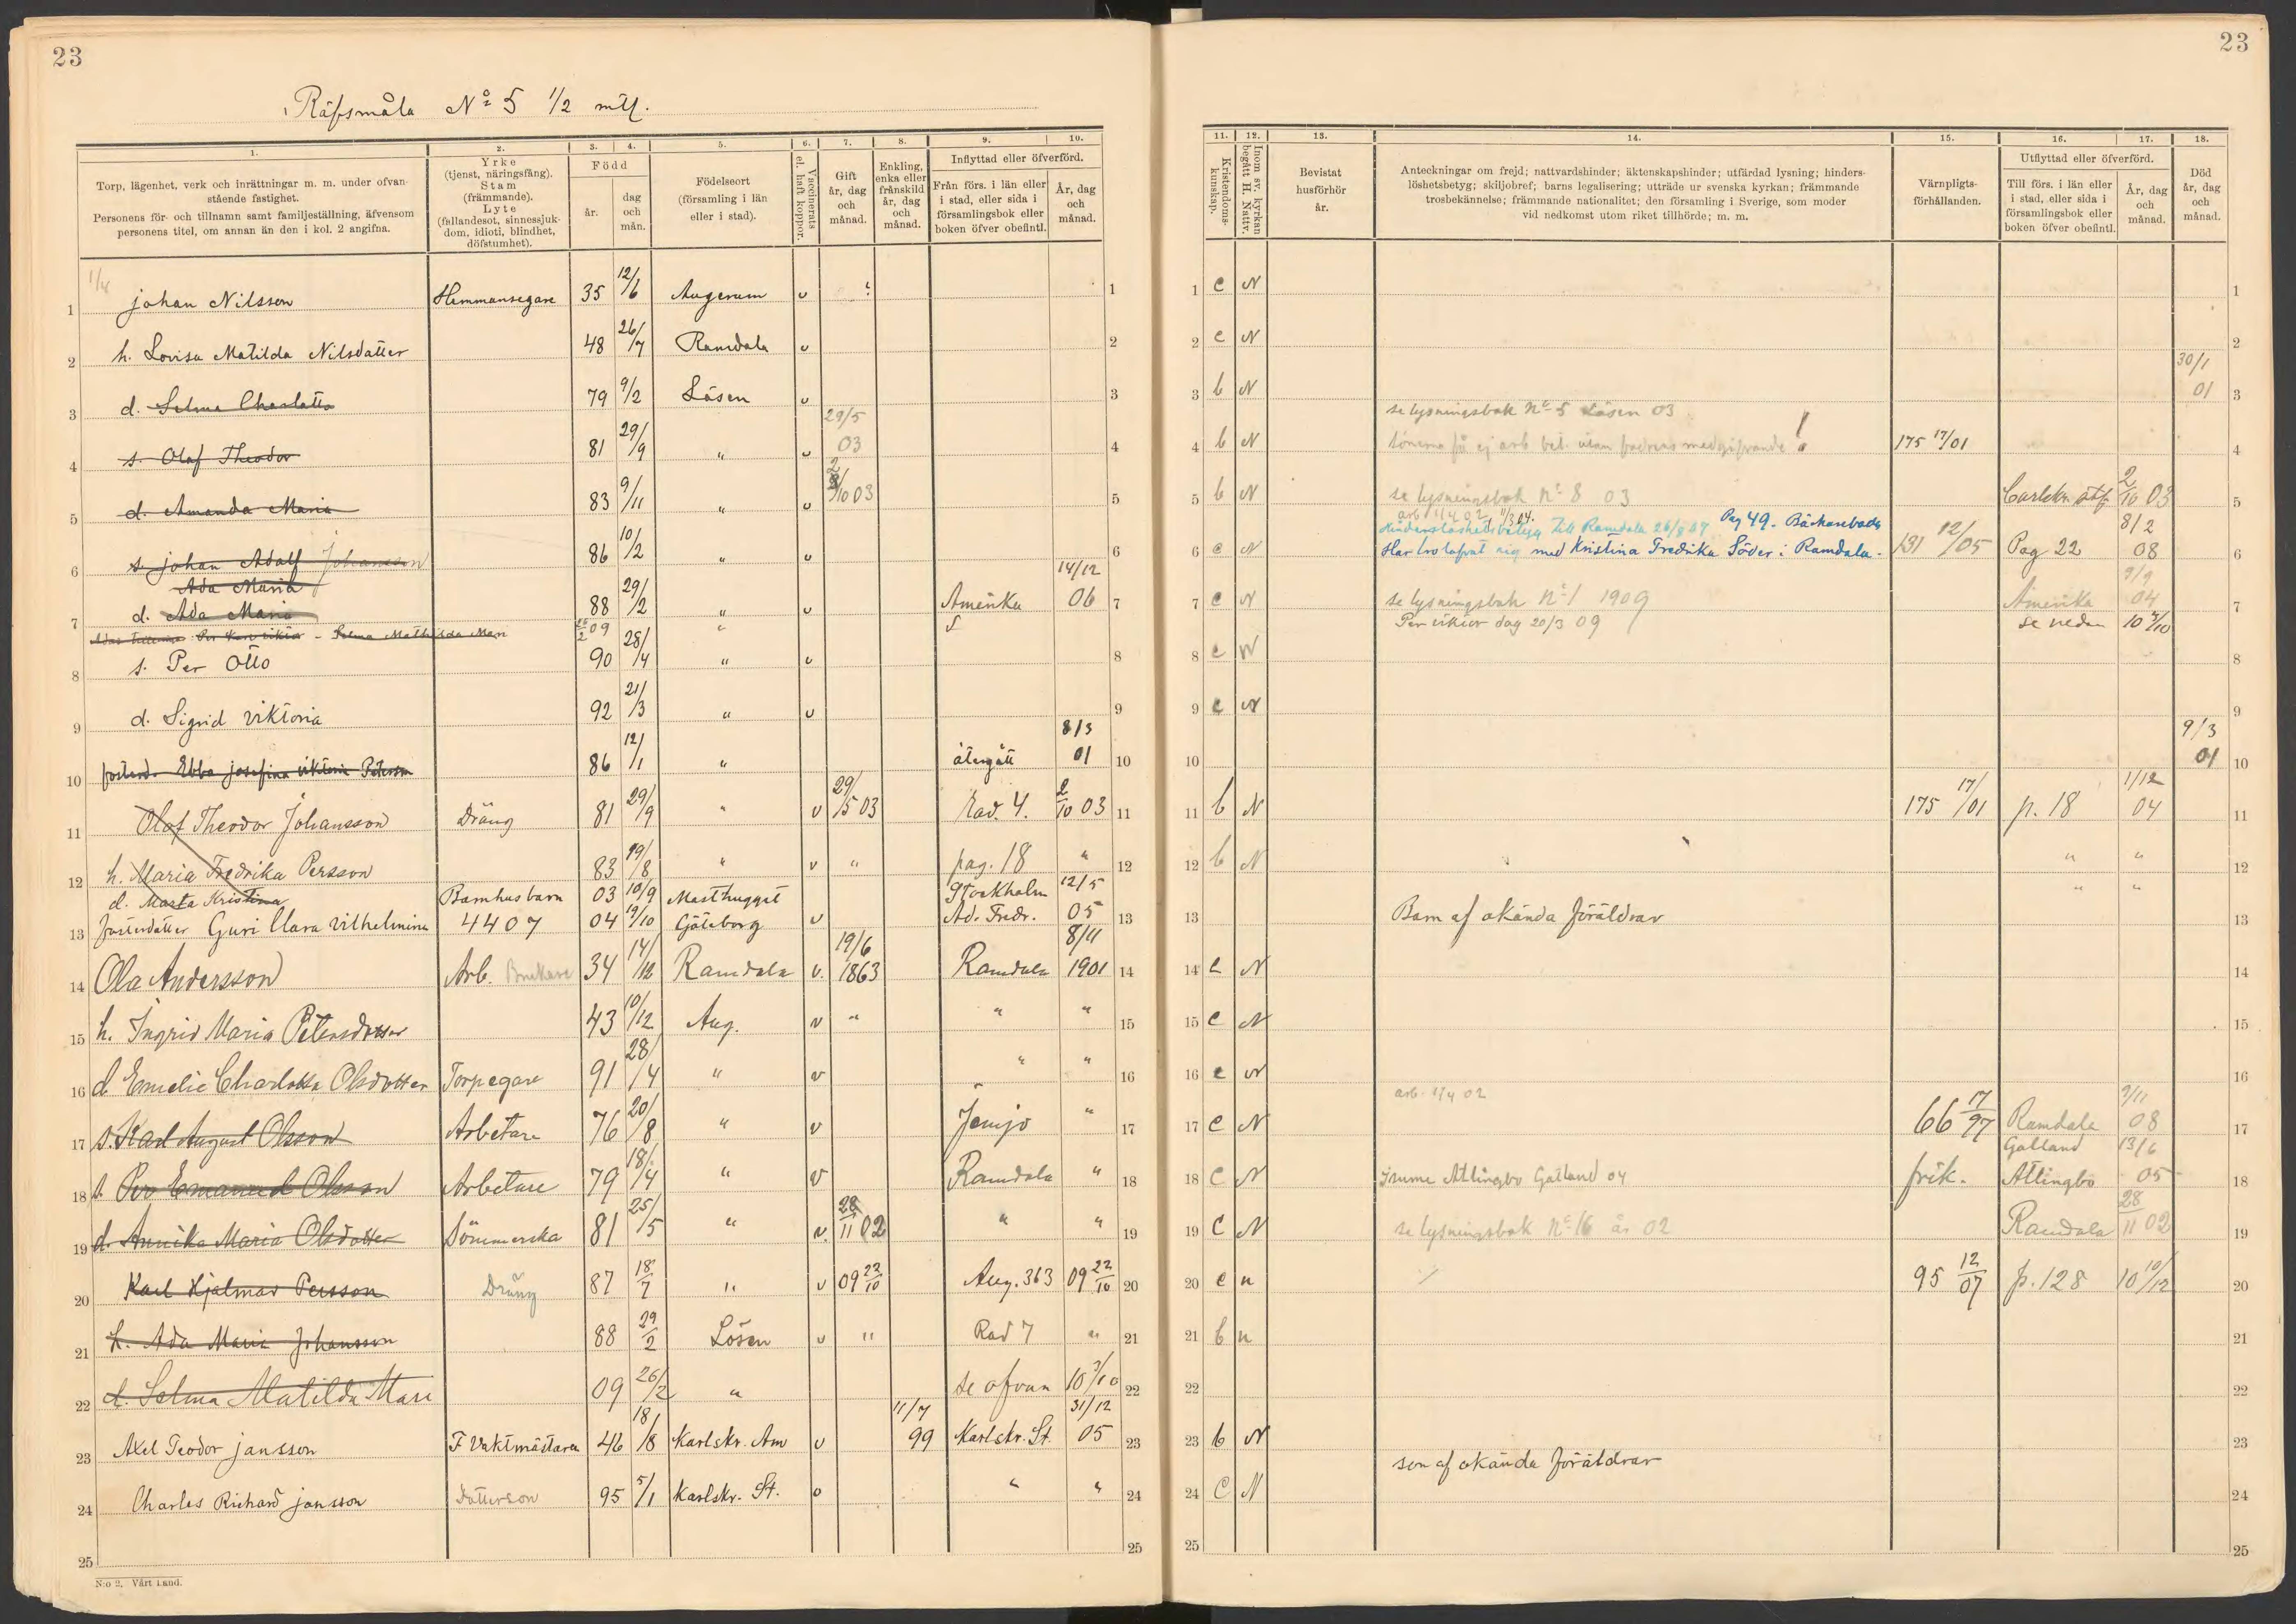 23
Räfsmåla No 5 1/2 mtl.
1. 2. 3. 4. 5. 6. 7. 8. 9. 10.
Torp, lägenhet, verk och inrättningar m. m. under ofvanstående fastighet.
Personens för- och tillnamn samt familjeställning, äfvensom personens titel, om annan än den i kol. 2 angifna.
Yrke (tjenst, näringsfång). Stam (främmande). Lyte (fallandesot, sinnessjukdom, idioti, blindhet, döfstumhet).
Född
år. dag och mån.
Födelseort (församling i län eller i stad).
Vaccinerats el. haft koppor.
Gift år, dag och månad.
Enkling, enka eller frånskild år, dag och månad.
Inflyttad eller öfverförd.
Från förs. i län eller i stad, eller sida i församlingsbok eller boken öfver obefintl.
År, dag och månad.
1 johan Nilsson Hemmansegare 35 12/6 Augerum v 1
2 h. Lovisa Matilda Nilsdatter 48 26/7 Ramdala v 2
3 d. Selma Charlotta 79 9/2 Lösen v 3
4 s. Olaf Theodor 81 29/9 " v 29/5 03 4
5 d. Amanda Maria 83 9/11 " v 2/10 03 5
6 s. johan Adolf Johansson 86 10/2 " v 6
Ada Maria
7 d. Ada Maria 88 29/2 " v Amerika 14/12 06 7
Selma Mathilda Mari 26/2 09 "
8 s. Per Otto 90 28/4 " v 8
9 d. Sigrid viktoria 92 21/3 " v 9
10 fosterd. Ebba josefina viktoria Peterson 86 12/1 " återgått 8/3 01 10
11 Olof Theodor Johansson Dräng 81 29/9 " v 29/5 03 Rad. 4. 2/10 03 11
12 h. Maria Fredrika Persson 83 19/8 " v " pag. 18 " 12
d. Märta Kristina Barnhusbarn 03 10/9 Masthugget Stockholm 12/5
13 fosterdatter Guri Clara vilhelmina 4407 04 19/10 Göteborg v Ad. Fredr. 05 13
14 Ola Andersson Arb. Brukare 34 14/12 Ramdala v. 19/6 1863 Ramdala 8/11 1901 14
15 h. Ingrid Maria Petersdotter 43 10/12 Aug. v " " " 15
16 d Emelie Charlotta Olsdotter Torpegare 91 28/4 " v " " 16
17 s. Karl August Olsson Arbetare 76 20/8 " v Jemjö " 17
18 s. Per Emanuel Olsson Arbetare 79 18/4 " v Ramdala " 18
19 d. Annika Maria Olsdotter Sömmerska 81 25/5 " v. 28/11 02 " " 19
20 Karl Hjalmar Persson Dräng 87 18/7 " v 09 22/10 Aug. 363 09 22/10 20
21 h. Ada Maria Johansson 88 29/2 Lösen v " Rad 7 " 21
22 d. Selma Matilda Mari 09 26/2 " se ofvan 10 3/10 22
23 Axel Teodor jansson F Vaktmästare 46 18/8 Karlskr. Am v 11/7 99 Karlskr. St. 31/12 05 23
24 Charles Richard jansson Dotterson 95 5/1 Karlskr. St. v " " 24
25 25
N:o 2. Vårt Land.
23
11. 12. 13. 14. 15. 16. 17. 18.
Kristendomskunskap.
Inom sv. kyrkan begått H. Nattv.
Bevistat husförhör år.
Anteckningar om frejd; nattvardshinder; äktenskapshinder; utfärdad lysning; hinderslöshetsbetyg; skiljobref; barns legalisering; utträde ur svenska kyrkan; främmande trosbekännelse; främmande nationalitet; den församling i Sverige, som moder vid nedkomst utom riket tillhörde; m. m.
Värnpligtsförhållanden.
Utflyttad eller öfverförd.
Till förs. i län eller i stad, eller sida i församlingsbok eller boken öfver obefintl.
År, dag och månad.
Död år, dag och månad.
1 c N 1
2 c N 2
3 b N 30/1 01 3
se lysningsbok No 5 Lösen 03
4 b N sönerna få ej arb. bet. utan fadrens medgifvande! 175 17/01 4
5 b N se lysningsbok No 8 03 Carlskr. 2/10 03 5
arb 4/4 02 11/3 04.
Hinderslöshetsbetyg till Ramdala 26/8 07 Pag 49.
6 c N Har trolofvat sig med Kristina Fredrika Söder i Ramdala. 131 12/05 Pag 22 8/2 08 6
7 c N se lysningsbok No 1 1909 Amerika 9/9 04 7
Per viktor dag 20/3 09 se nedan 10 3/10
8 c N 8
9 c N 9
10 9/3 01 10
11 b N 175 17/01 p. 18 1/12 04 11
12 b N " " 12
" "
13 Barn af okända föräldrar 13
14 c N 14
15 c N 15
16 c N 16
arb. 4/4 02
17 c N 66 17/97 Ramdala 9/11 08 17
18 c N Gotland 04 frik. Gotland Atlingbo 13/6 05 18
19 c N se lysningsbok No 16 år 02 Ramdala 28/11 02 19
20 c n 95 12/07 p. 128 10 10/12 20
21 b n 21
22 22
23 b N 23
son af okända föräldrar
24 C N 24
25 25